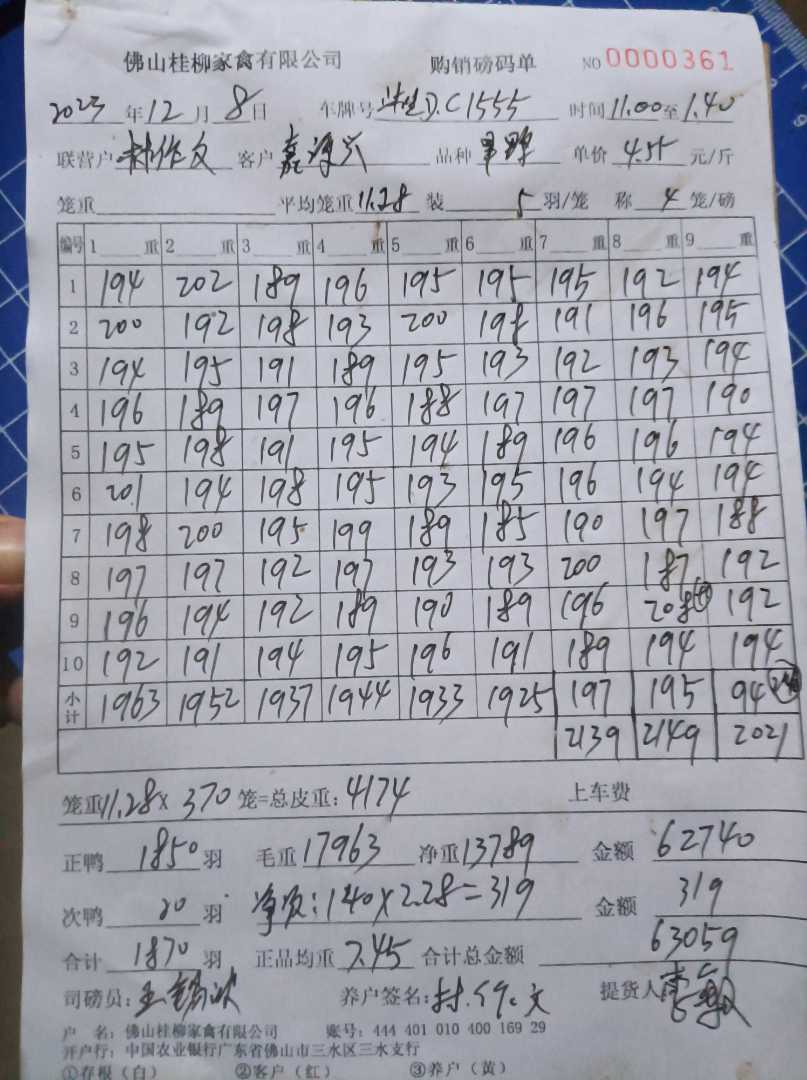 佛山桂柳家禽有限公司 购销磅码单 NO 0000361
2023年12月8日 车牌号 D.C1555 时间11.00至1.40
联营户 林作文 客户 品种 单价 4.55 元/斤
笼重 平均笼重11.28 装 5 羽/笼 称 4 笼/磅
编号 1 重 2 重 3 重 4 重 5 重 6 重 7 重 8 重 9 重
1 194 202 189 196 195 195 195 192 194
2 200 192 198 193 200 198 191 196 195
3 194 195 191 189 195 193 192 193 194
4 196 189 197 196 188 197 197 197 190
5 195 198 191 195 194 189 196 196 194
6 201 194 198 195 193 195 196 194 194
7 198 200 195 199 189 185 190 197 188
8 197 197 192 197 193 193 200 187 192
9 196 194 192 189 190 189 196 208 192
10 192 191 194 195 196 191 189 194 194
小计 1963 1952 1937 1944 1933 1925 197 195 94
2139 2149 2021
笼重11.28×370笼=总皮重:4174 上车费
正鸭 1850 羽 毛重17963 净重13789 金额 62740
次鸭 20 羽 :140×2.28=319 金额 319
合计 1870 羽 正品均重 7.45 合计总金额 63059
司磅员: 养户签名: 提货人
户 名:佛山桂柳家禽有限公司 账号:444 401 010 400 169 29
开户行:中国农业银行广东省佛山市三水区三水支行
①存根(白) ②客户(红) ③养户(黄)